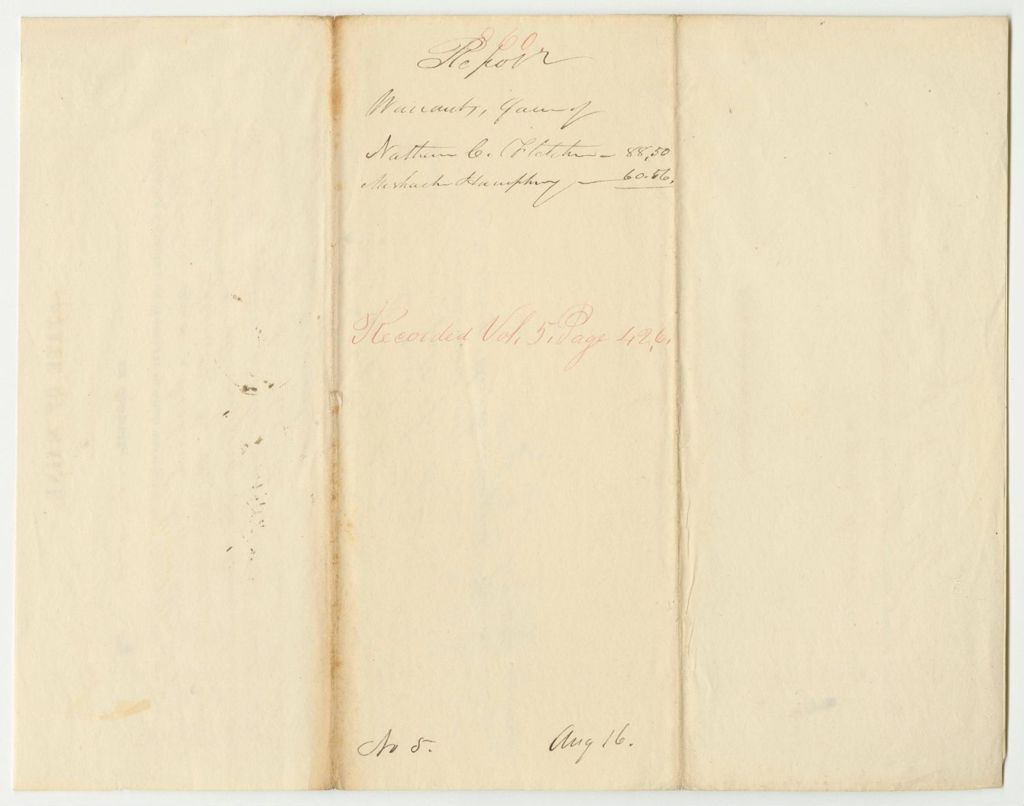 360
Report
Warrants, favor of
Nathan C. Fletcher — 88,50
Meshach Humphrey — 60.56,
Recorded Vol, 5, Page 426.
No 5. Aug 16.